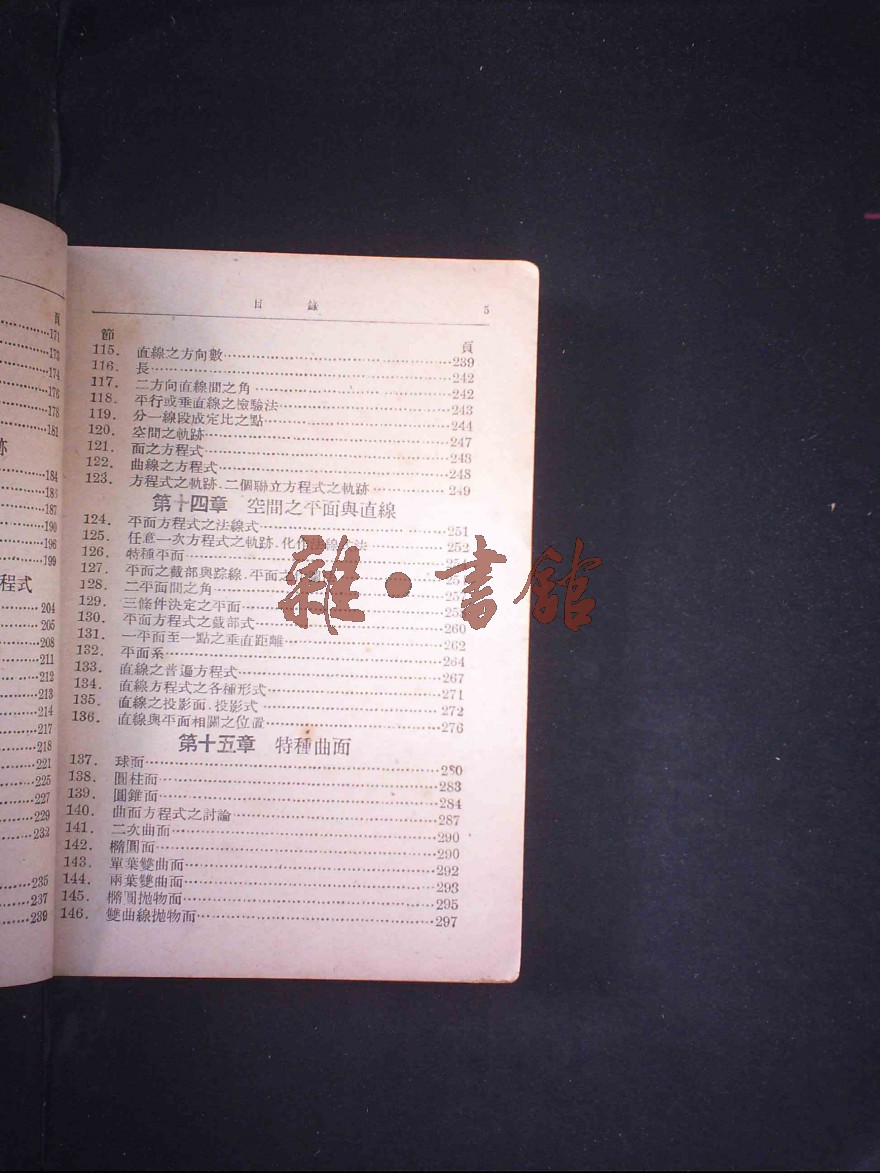 頁
171
173
174
176
178
181
跡
184
187
190
196
199
程式
204
205
208
211
212
213
214
217
218
221
225
227
229
232
235
237
239
目 錄 5
節 頁
115. 直線之方向數 239
116. 長 242
117. 二方向直線間之角 242
118. 平行或垂直線之檢驗法 243
119. 分一線段成定比之點 244
120. 空間之軌跡 247
121. 面之方程式 248
122. 曲線之方程式 248
123. 方程式之軌跡.二個聯立方程式之軌跡 249
第十四章 空間之平面與直線
124. 平面方程式之法線式 251
125. 任意一次方程式之軌跡.化作法線式法 252
126. 特種平面
127. 平面之截部與踪線.平面之
128. 二平面間之角
129. 三條件決定之平面
130. 平面方程式之截部式 260
131. 一平面至一點之垂直距離 262
132. 平面系 264
133. 直線之普遍方程式 267
134. 直線方程式之各種形式 271
135. 直線之投影面.投影式 272
136. 直線與平面相關之位置 276
第十五章 特種曲面
137. 球面 280
138. 圓柱面 283
139. 圓錐面 284
140. 曲面方程式之討論 287
141. 二次曲面 290
142. 橢圓面 290
143. 單葉雙曲面 292
144. 兩葉雙曲面 293
145. 橢圓拋物面 295
146. 雙曲線拋物面 297
雜·書館